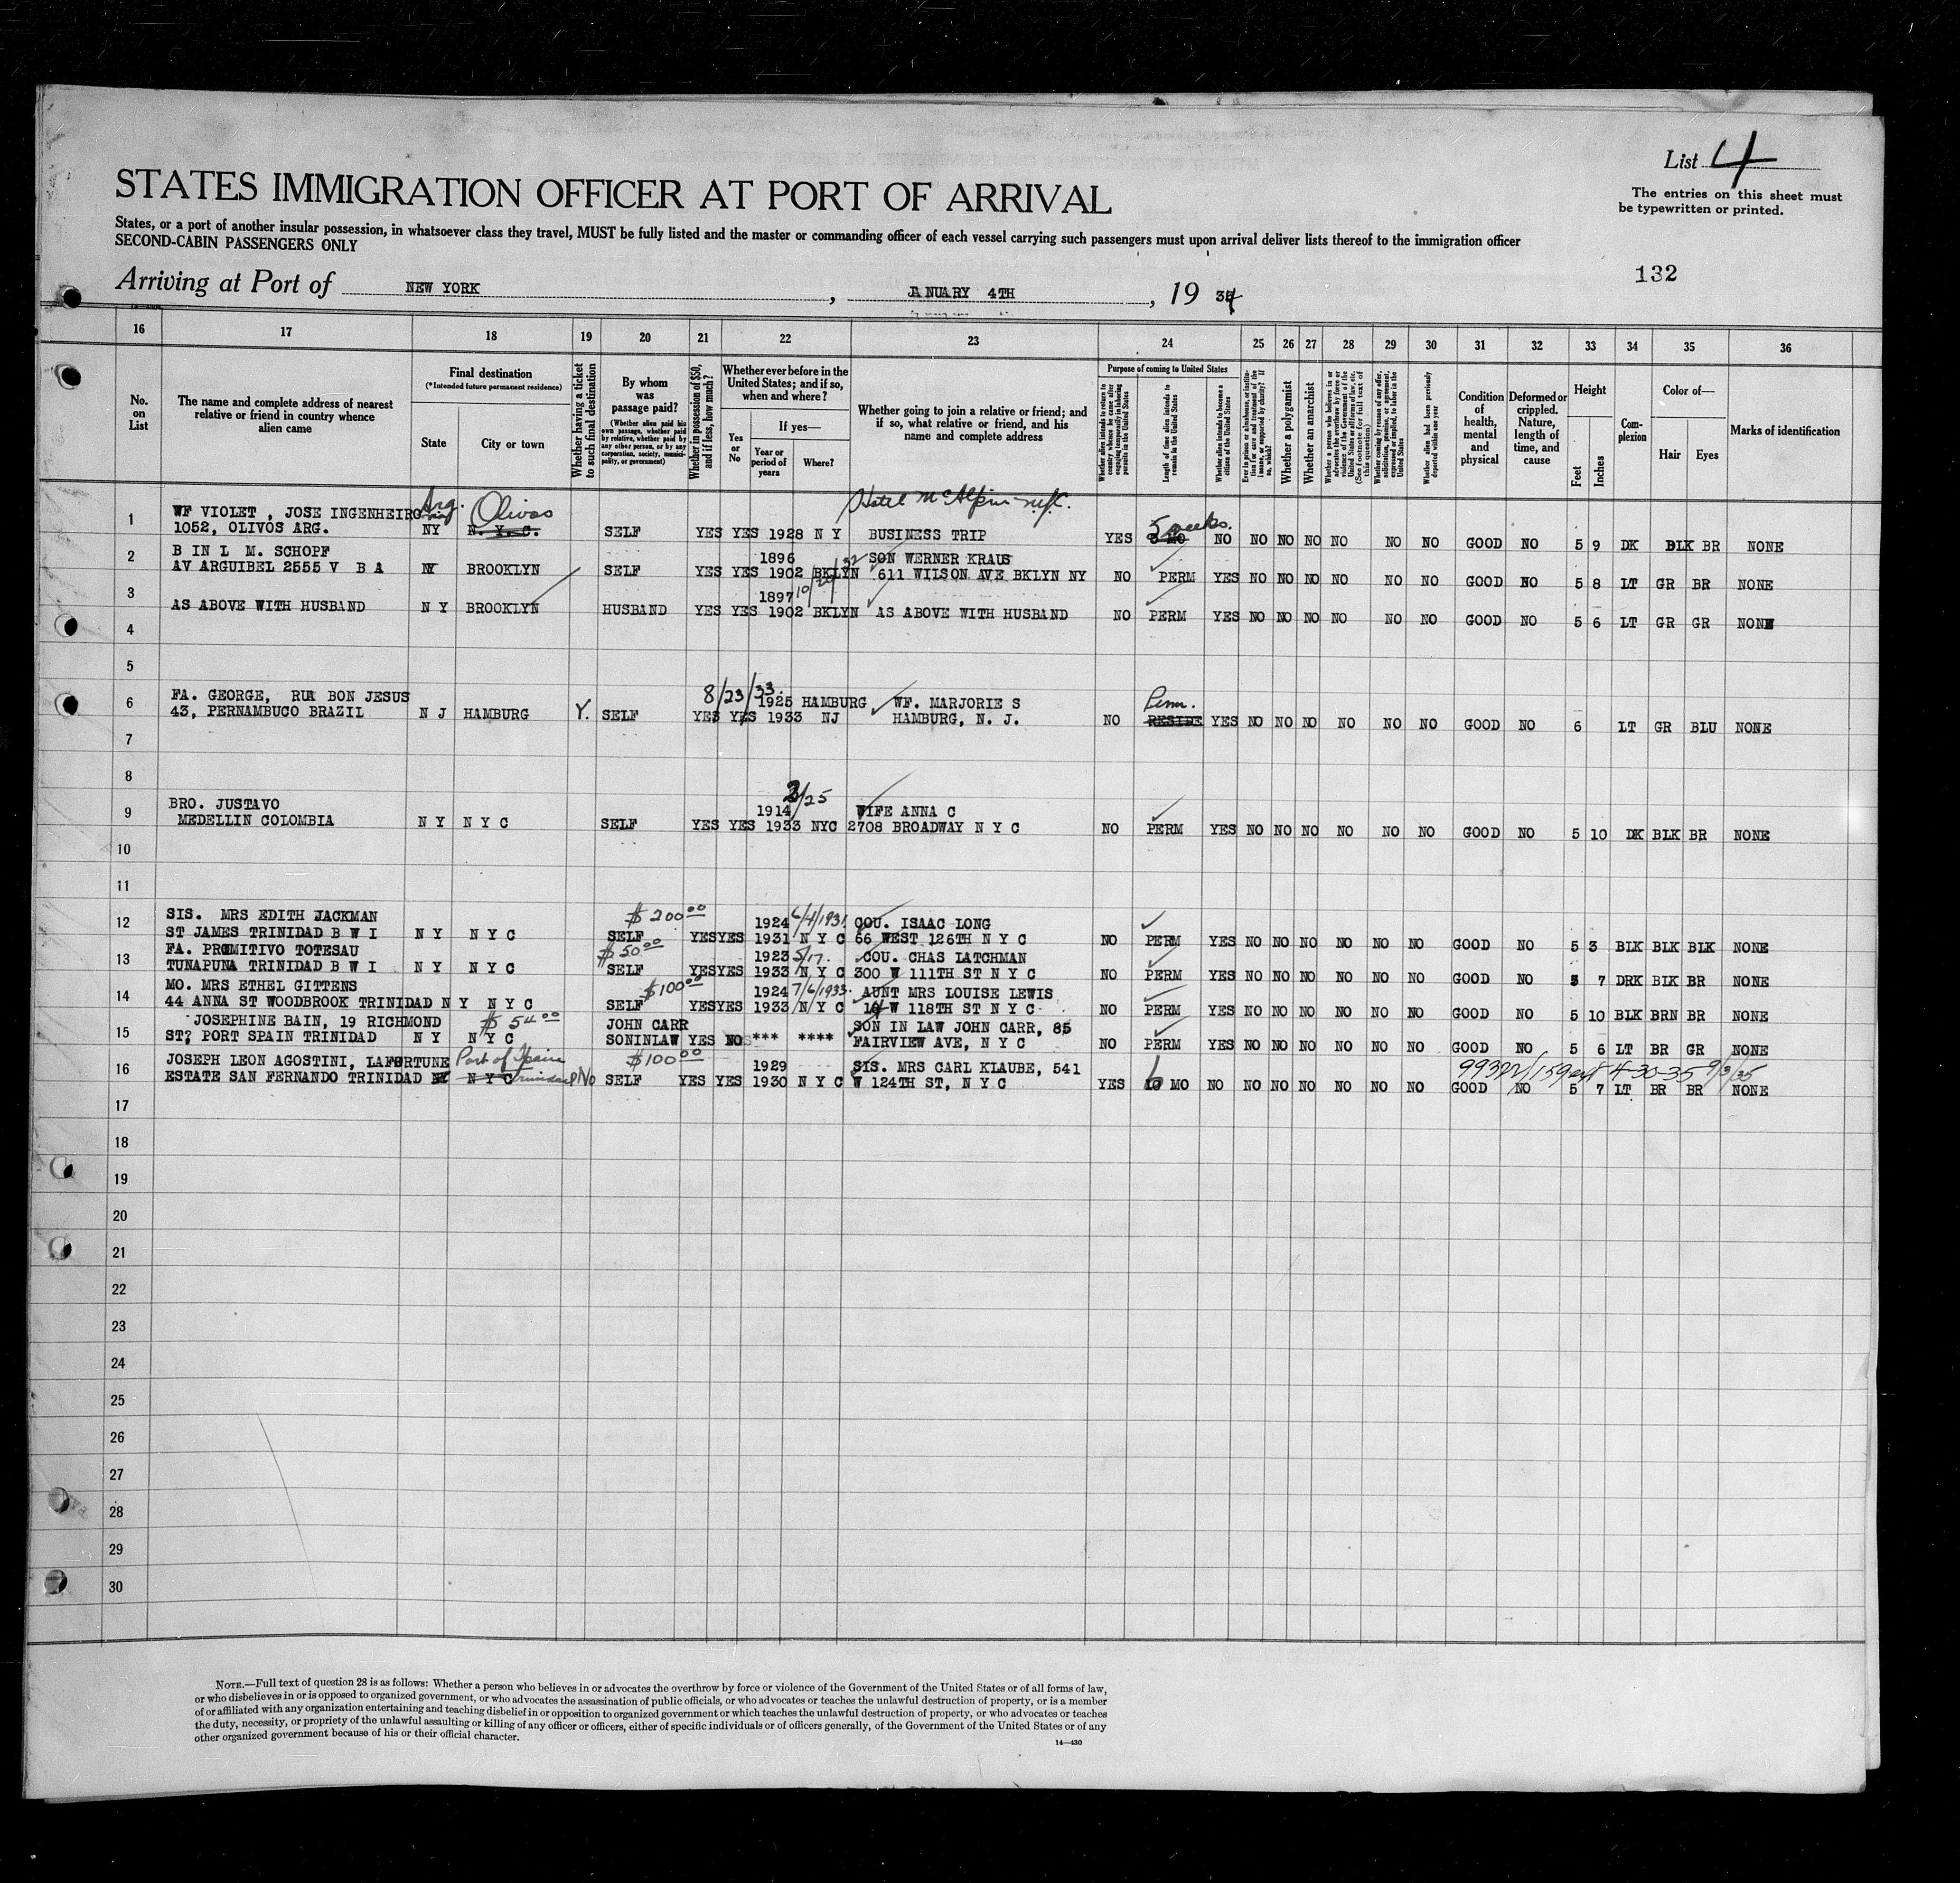 List 4
The entries on this sheet must
be typewritten or printed.
STATES IMMIGRATION OFFICER AT PORT OF ARRIVAL
States, or a port of another insular possession, in whatsoever class they travel, MUST be fully listed and the master or commanding officer of each vessel carrying such passengers must upon arrival deliver lists thereof to the immigration officer
SECOND-CABIN PASSENGERS ONLY
132
Arriving at Port of NEW YORK, JANUARY 4TH, 19 34
16 17 18 19 20 21 22 23 24 25 26 27 28 29 30 31 32 33 34 35 36
No. on List
The name and complete address of nearest relative or friend in country whence alien came
Final destination
(*Intended future permanent residence)
State
City or town
Whether having a ticket to such final destination
By whom was passage paid?
(Whether alien paid his own passage, whether paid by relative, whether paid by any other person, or by any corporation, society, municipality, or government)
Whether in possession of $50, and if less, how much?
Whether ever before in the United States; and if so, when and where?
Yes or No
If yes—
Year or period of years
Where?
Whether going to join a relative or friend; and if so, what relative or friend, and his name and complete address
Purpose of coming to United States
Whether alien intends to return to country whence he came after engaging temporarily in laboring pursuits in the United States
Length of time alien intends to remain in the United States
Whether alien intends to become a citizen of the United States
Ever in prison or almshouse, or institution for care and treatment of the insane, or supported by charity? If so, which?
Whether a polygamist
Whether an anarchist
Whether a person who believes in or advocates the overthrow by force or violence of the Government of the United States or all forms of law, etc. (See footnote for full text of this question)
Whether coming by reason of any offer, solicitation, promise, or agreement, expressed or implied, to labor in the United States
Whether alien had been previously deported within one year
Condition of health, mental and physical
Deformed or crippled. Nature, length of time, and cause
Height
Feet
Inches
Complexion
Color of—
Hair
Eyes
Marks of identification
Arg. Olivos Hotel McAlpin N.Y.C. 5 weeks.
1 WF VIOLET , JOSE INGENHEIRO
1052, OLIVOS ARG. NY N. Y. C. SELF YES YES 1928 N Y BUSINESS TRIP YES 3 MO NO NO NO NO NO NO NO GOOD NO 5 9 DK BLK BR NONE
2 B IN L M. SCHOPF 1896 SON WERNER KRAUS
AV ARGUIBEL 2555 V B A NY BROOKLYN SELF YES YES 1902 BKLYN 611 WILSON AVE BKLYN NY NO PERM YES NO NO NO NO NO NO GOOD NO 5 8 LT GR BR NONE
3 1897
AS ABOVE WITH HUSBAND N Y BROOKLYN HUSBAND YES YES 1902 BKLYN AS ABOVE WITH HUSBAND NO PERM YES NO NO NO NO NO NO GOOD NO 5 6 LT GR GR NONE
4
5
8/23/33. Perm.
6 FA. GEORGE, RUA BON JESUS 1925 HAMBURG WF. MARJORIE S
43, PERNAMBUCO BRAZIL N J HAMBURG Y. SELF YES YES 1933 NJ HAMBURG, N. J. NO RESIDE YES NO NO NO NO NO NO GOOD NO 6 LT GR BLU NONE
7
8
3/25
9 BRO. JUSTAVO 1914 WIFE ANNA C
MEDELLIN COLOMBIA N Y N Y C SELF YES YES 1933 NYC 2708 BROADWAY N Y C NO PERM YES NO NO NO NO NO NO GOOD NO 5 10 DK BLK BR NONE
10
11
12 SIS. MRS EDITH JACKMAN $200 00 1924 6/4/1931 COU. ISAAC LONG
ST JAMES TRINIDAD B W I N Y N Y C SELF YES YES 1931 N Y C 66 WEST 126TH N Y C NO PERM YES NO NO NO NO NO NO GOOD NO 5 3 BLK BLK BLK NONE
13 FA. PROMITIVO TOTESAU $50 00 1923 5/17. COU. CHAS LATCHMAN
TUNAPUNA TRINIDAD B W I N Y N Y C SELF YES YES 1933 N Y C 300 W 111TH ST N Y C NO PERM YES NO NO NO NO NO NO GOOD NO 5 7 DRK BLK BR NONE
14 MO. MRS ETHEL GITTENS $100 00 1924 7/6/1933. AUNT MRS LOUISE LEWIS
44 ANNA ST WOODBROOK TRINIDAD N Y N Y C SELF YES YES 1933 N Y C W 118TH ST N Y C NO PERM YES NO NO NO NO NO NO GOOD NO 5 10 BLK BRN BR NONE
15 JOSEPHINE BAIN, 19 RICHMOND $54 00 JOHN CARR SON IN LAW JOHN CARR, 85
ST; PORT SPAIN TRINIDAD N Y N Y C SONINLAW YES NO *** **** FAIRVIEW AVE, N Y C NO PERM YES NO NO NO NO NO NO GOOD NO 5 6 LT BR GR NONE
16 JOSEPH LEON AGOSTINI, LAFORTUNE Port of Spain $100 00 1929 SIS. MRS CARL KLAUBE, 541 4-30-35 9/3/35
ESTATE SAN FERNANDO TRINIDAD NY N Y C Trinidad No SELF YES YES 1930 N Y C W 124TH ST, N Y C YES 6 MO NO NO NO NO NO NO NO GOOD NO 5 7 LT BR BR NONE
17
18
19
20
21
22
23
24
25
26
27
28
29
30
NOTE.—Full text of question 28 is as follows: Whether a person who believes in or advocates the overthrow by force or violence of the Government of the United States or of all forms of law,
or who disbelieves in or is opposed to organized government, or who advocates the assassination of public officials, or who advocates or teaches the unlawful destruction of property, or is a member
of or affiliated with any organization entertaining and teaching disbelief in or opposition to organized government or which teaches the unlawful destruction of property, or who advocates or teaches
the duty, necessity, or propriety of the unlawful assaulting or killing of any officer or officers, either of specific individuals or of officers generally, of the Government of the United States or of any
other organized government because of his or their official character.
14—430